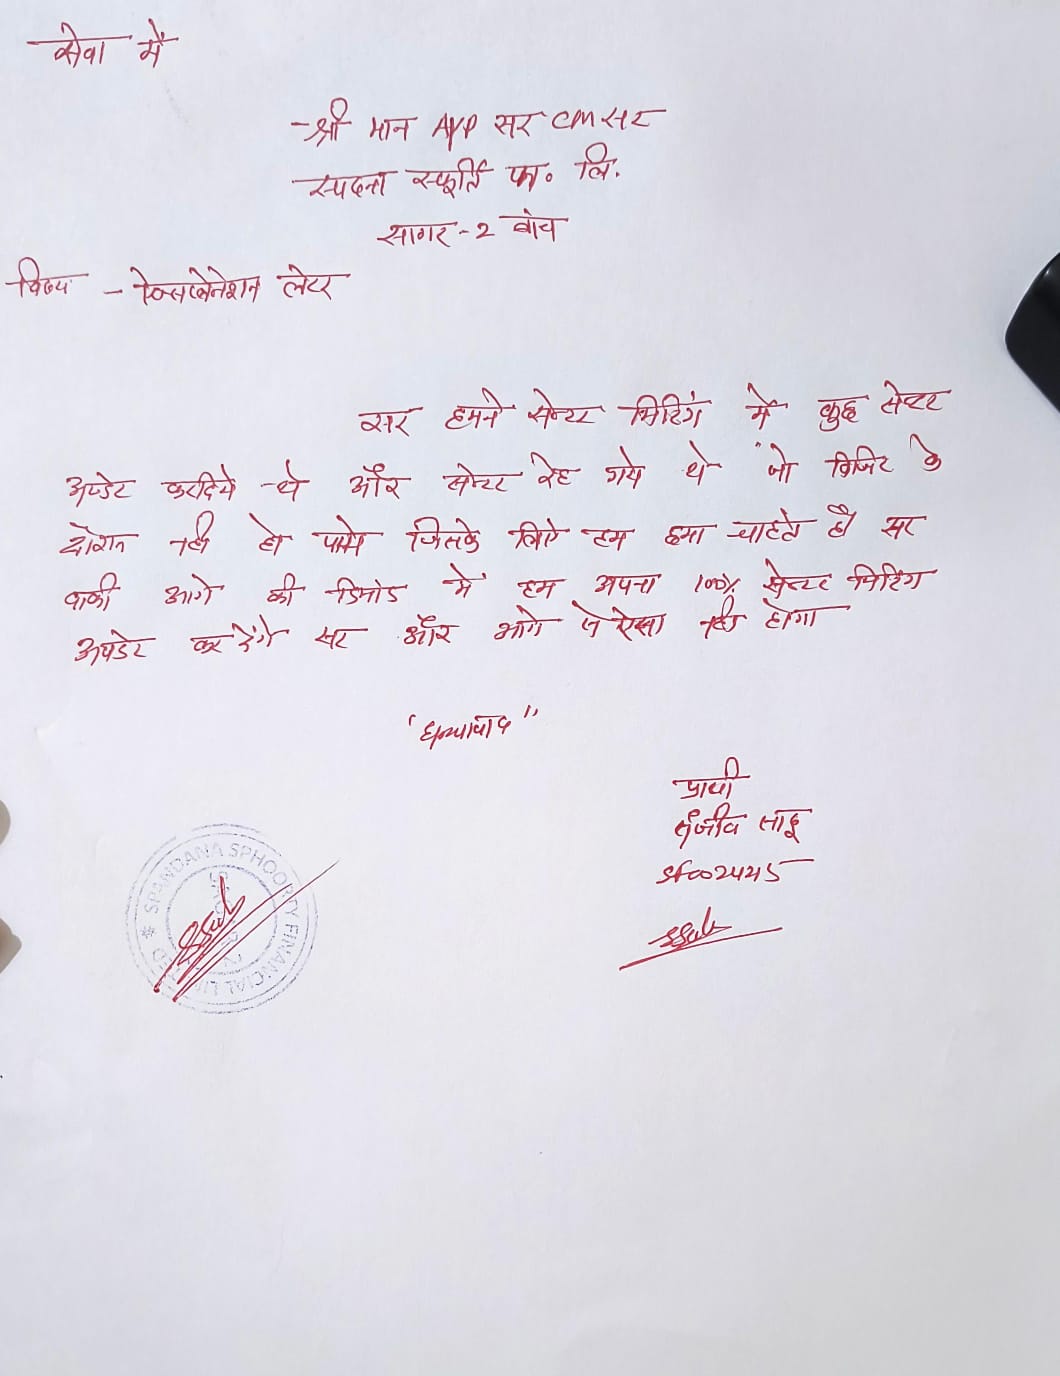 सेवा में
श्री मान AVP सर CM सर
स्पदना स्फूर्ति फा. लि.
सागर-2 ब्रांच
विषय - ऐक्सप्लेनेशन लेटर
सर हमने सेन्टर मिटिंग में कुछ सेन्टर
अपडेट कर दिये थे और सेन्टर रेह गये थे जो विजिट के
दौरान नही हो पाये जिसके लिऐ हम क्षमा चाहते है सर
बाकी आगे की डिमांड में हम अपना 100% सेन्टर मिटिंग
अपडेट कर देंगे सर और आगे से ऐसा नही होगा
"धन्यावाद"
प्रार्थी
संजीव साहू
SF002445
SPANDANA SPHOORTY FINANCIAL LIMITED